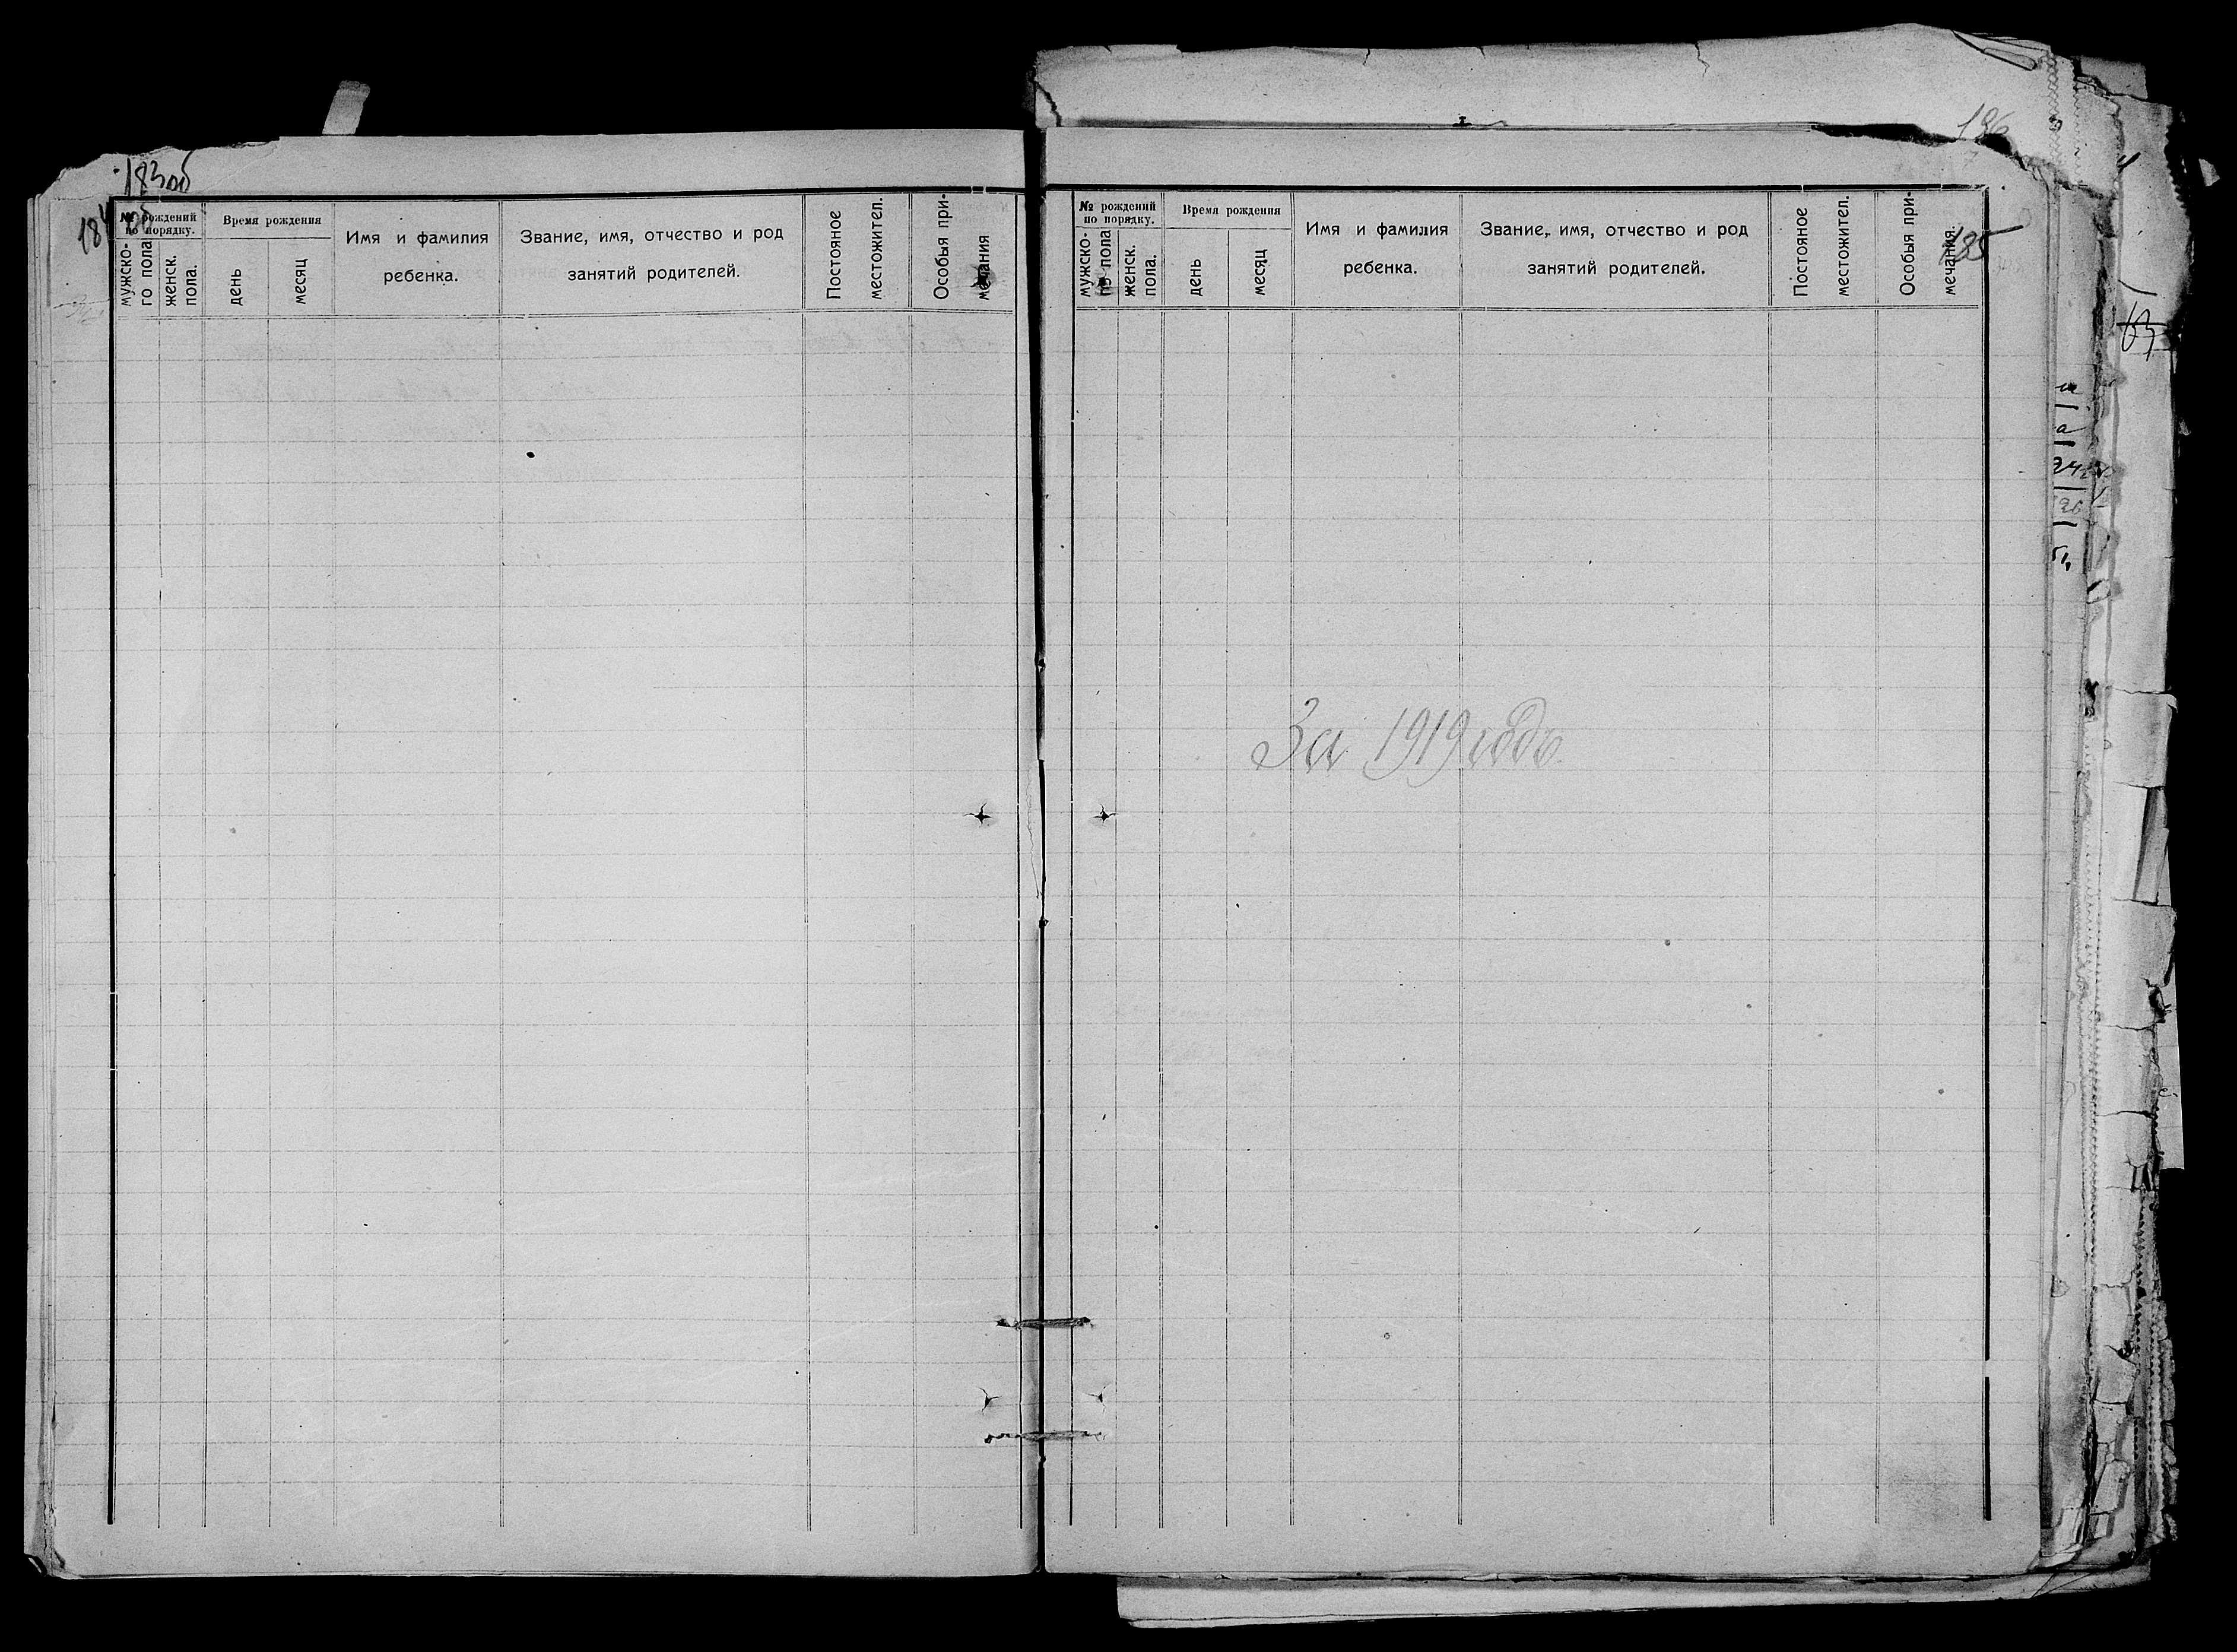 183об
184
№ рождений
по порядку.
мужско-
го пола
женск.
пола.
Время рождения
день
месяц
Имя и фамилия
ребенка.
Звание, имя, отчество и род
занятий родителей.
Постояное
местожител.
Особыя при-
мечания
186
185
№ рождений
по порядку.
мужско-
го пола
женск.
пола.
Время рождения
день
месяц
Имя и фамилия
ребенка.
Звание, имя, отчество и род
занятий родителей.
Постояное
местожител.
Особыя при-
мечания.
За 1919 годъ